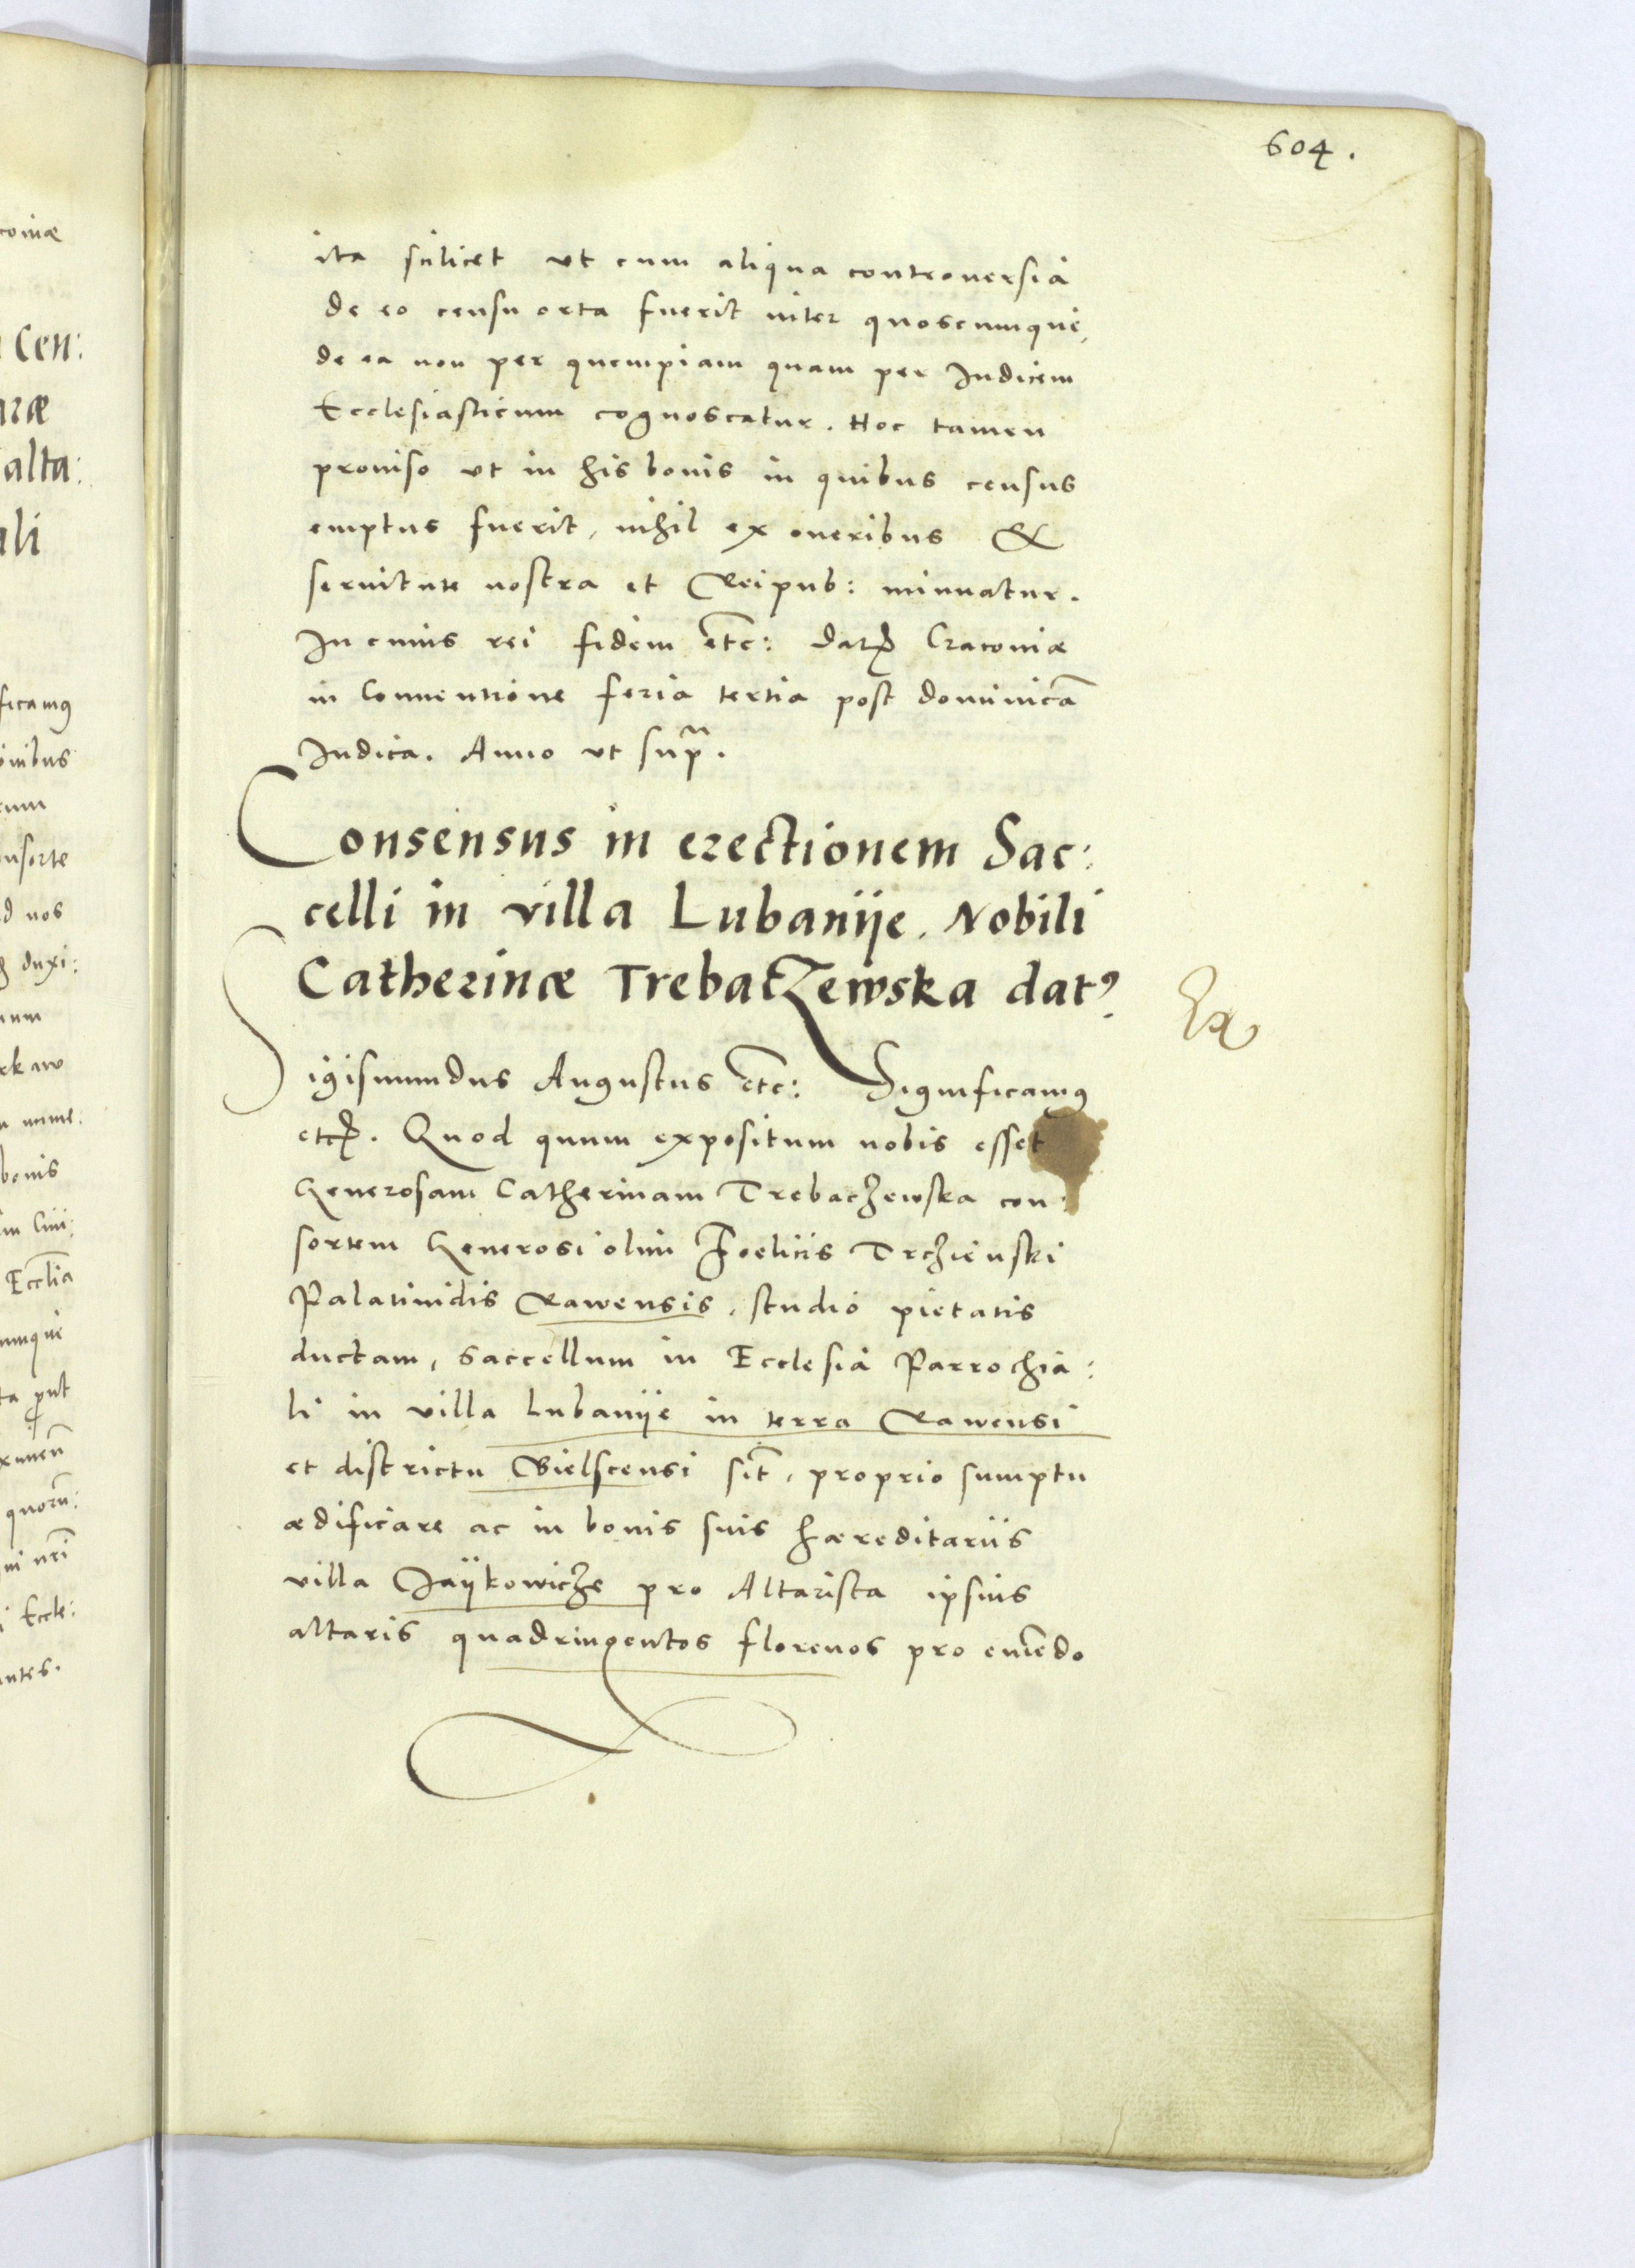 604.
ita scilicet ut cum aliqua controuersia
de eo censu orta fuerit inter quoscumque,
de ea non per quempiam quam per Iudicem
Ecclesiasticum cognoscatur. Hoc tamen
prouiso ut in his bonis in quibus census
emptus fuerit, nihil ex oneribus &
seruitute nostra et Reipub: minuatur.
In cuius rei fidem etc: Dat Cracouiæ
in Conuentione feria tertia post dominicā
Iudica. Anno ut supra.
Consensus in erectionem Sac:
celli in villa Lubanije. Nobili
Catherinæ Trebaczewska dat9
Sigismundus Augustus etc: Significamus
etc. Quod quum expositum nobis esset
Generosam Catherinam Trebaczewska con:
sortem Generosi olim Foelicis Trczienski
Palatinidis Rawensis, studio pietatis
ductam, saccellum in Ecclesia Parrochia:
li in villa Lubanije in terra Rawensi
et districtu Bielscensi sit, proprio sumptu
ædificare ac in bonis suis hæreditariis
villa Jaÿkowicze pro Altarista ipsius
altaris quadringentos florenos pro emedo